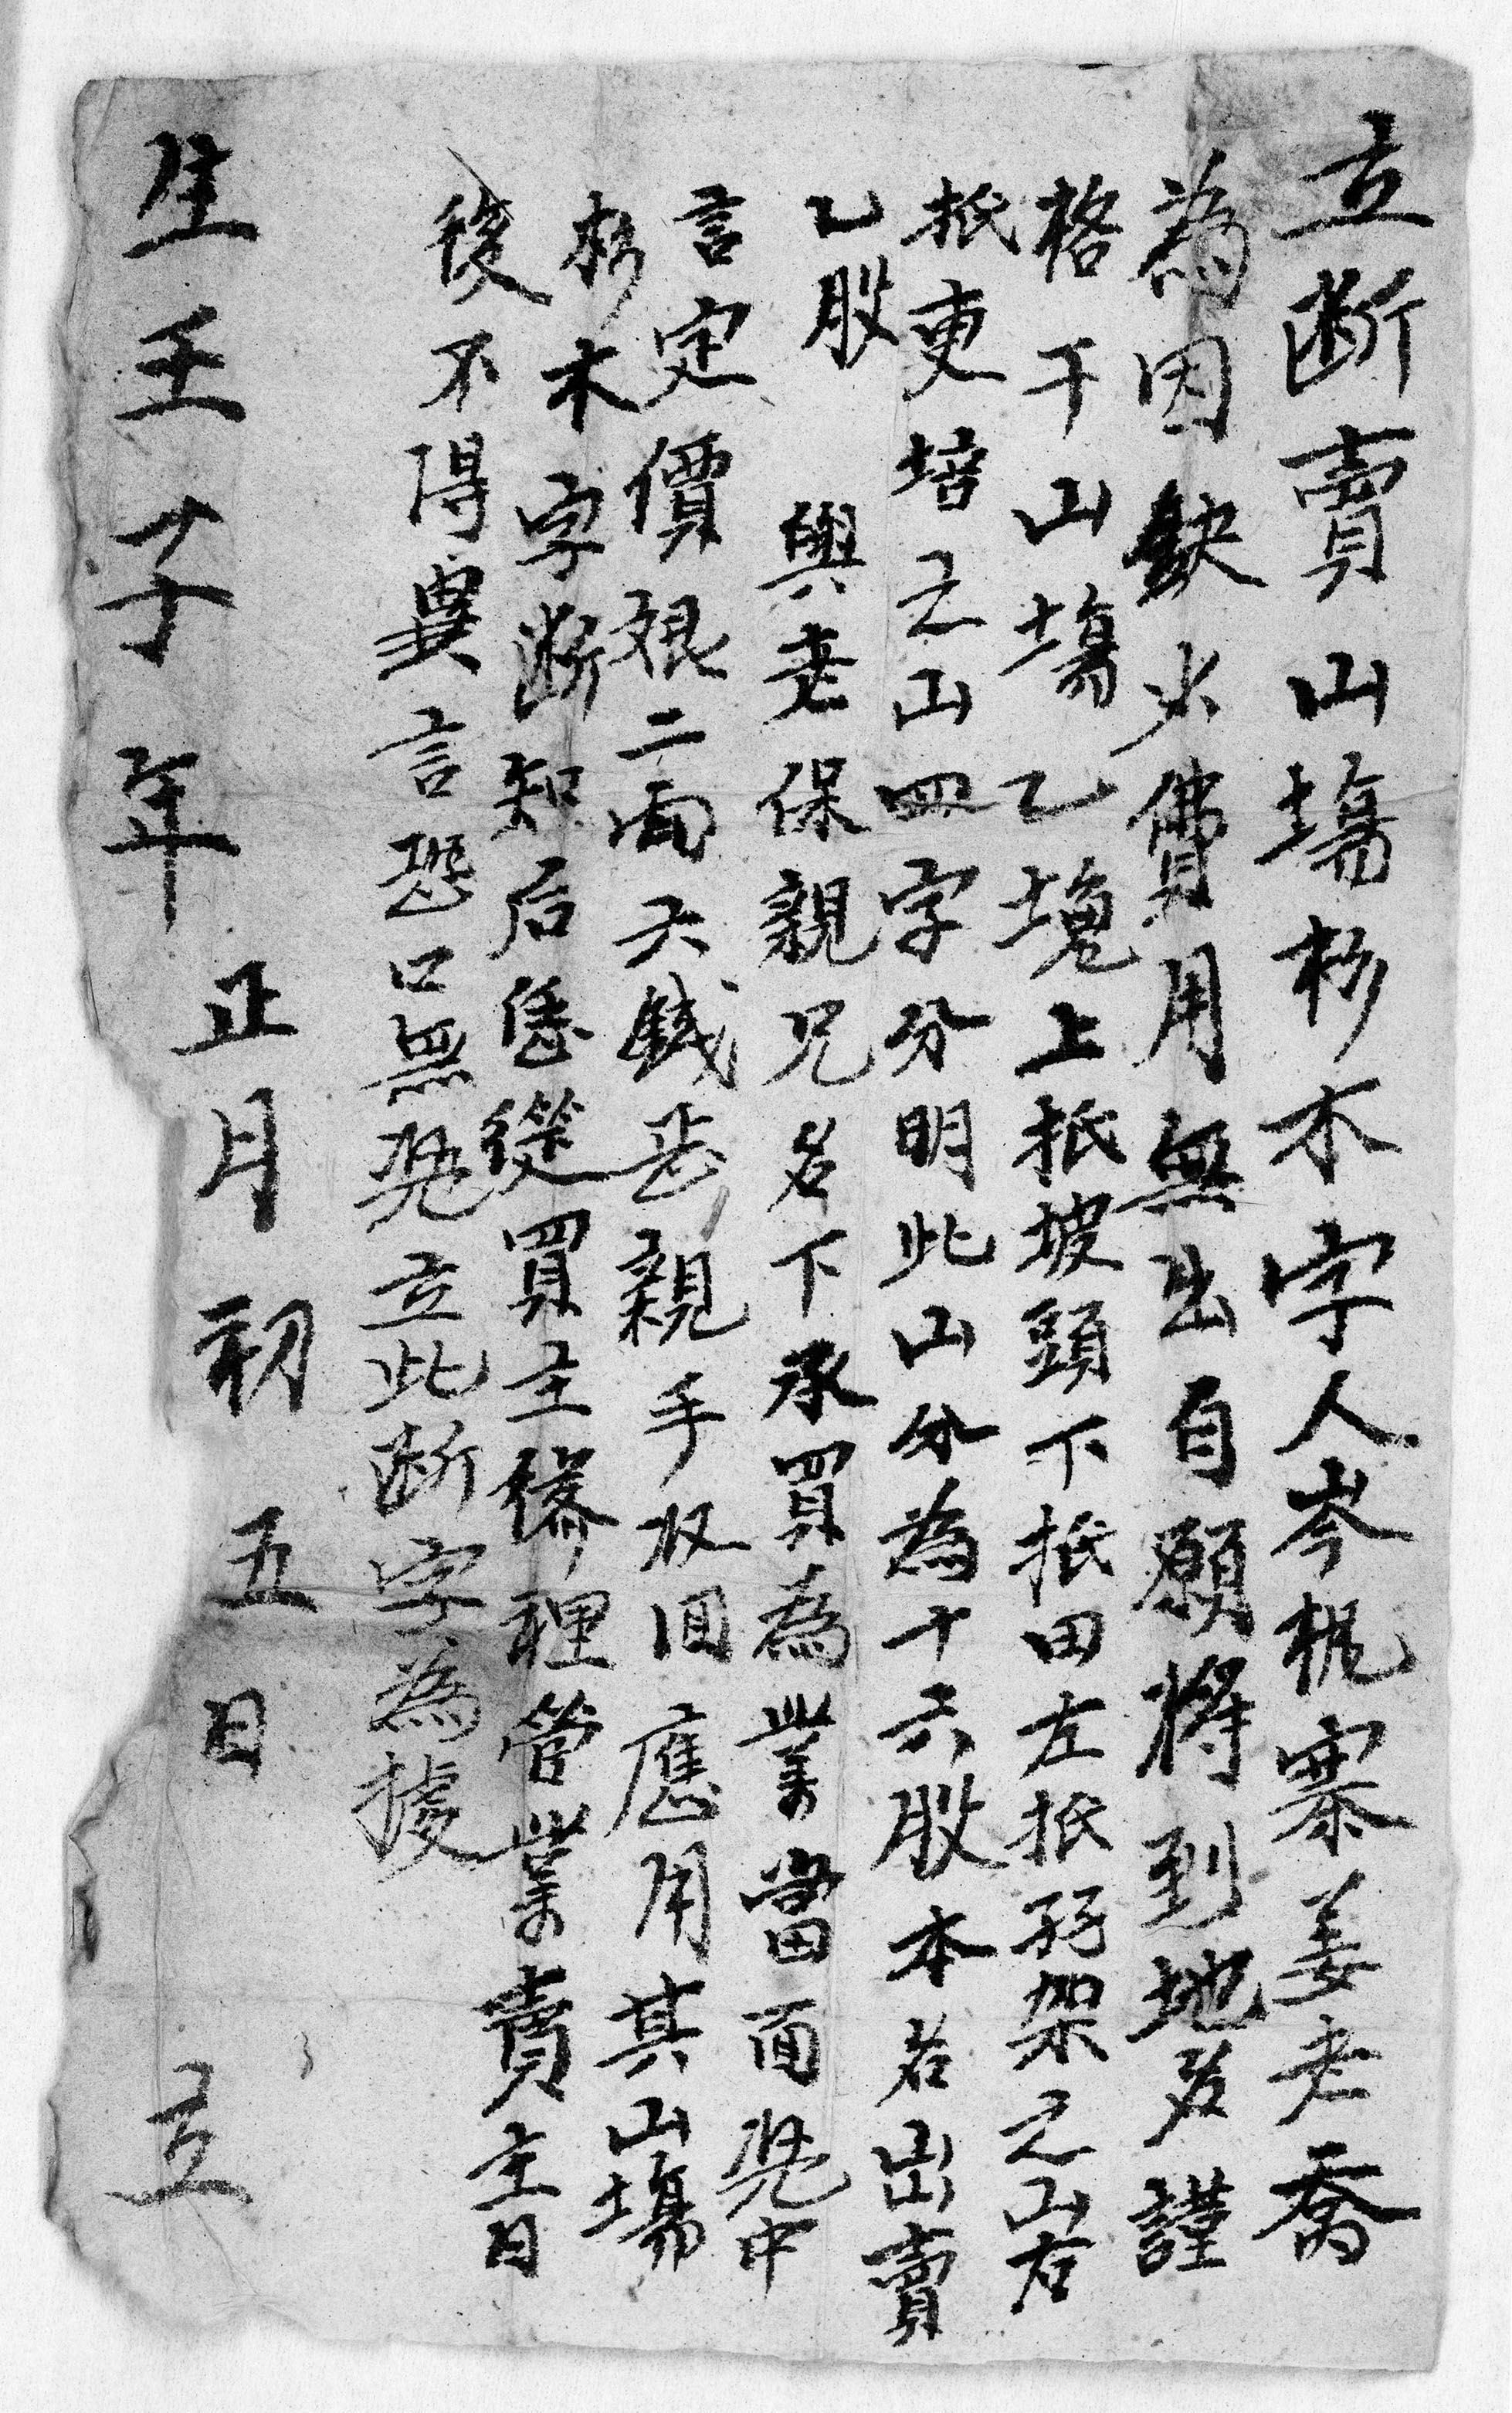 立断賣山塲杉木字人岑梘寨姜老喬
為因缺少費用無出自願將到地名謹
格干山塲乙塊上抵坡頭下抵田左抵羿架之山右
抵更培之山四字分明此山分為十六股本名出賣
乙股 與老保親兄名下承買為業當面凴中
言定價銀二両六錢正親手收囬應用其山塲
杉木字断知后凴從買主修理管業賣主日
後不得異言恐口無凴立此断字為據
生壬子年正月初五日 立